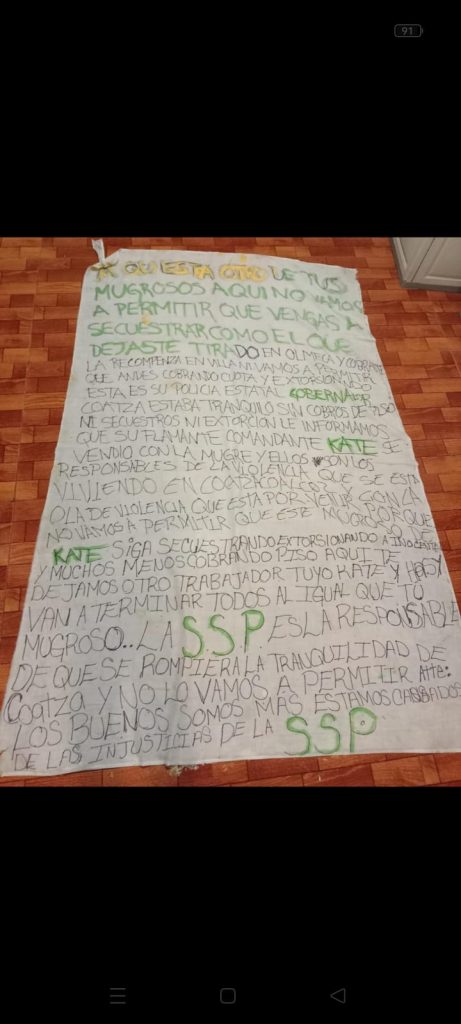 91
AQUI ESTA OTRO DE TUS
MUGROSOS AQUI NO VAMOS
A PERMITIR QUE VENGAS A
SECUESTRAR COMO EL QUE
DEJASTE TIRADO EN OLMECA Y COBRASTE
LA RECOMPENZA EN VILLA NI VAMOS A PERMITIR
QUE ANDES COBRANDO CUOTA Y EXTORSIONANDO
ESTA ES SU POLICIA ESTATAL GOBERNADOR
COATZA ESTABA TRANQUILO SIN COBROS DE PISO
NI SECUESTROS NI EXTORCION LE INFORMAMOS
QUE SU FLAMANTE COMANDANTE KATE SE
VENDIO CON LA MUGRE Y ELLOS SON LOS
RESPONSABLES DE LA VIOLENCIA QUE SE ESTA
VIVIENDO EN COATZACOALCOS Y
OLA DE VIOLENCIA QUE ESTA POR VENIR CON LA
NO VAMOS A PERMITIR QUE ESTE MUGROSO DE PORQUE
KATE SIGA SECUESTRANDO EXTORSIONANDO A INOCENTES
Y MUCHOS MENOS COBRANDO PISO AQUI TE
DEJAMOS OTRO TRABAJADOR TUYO KATE Y ASY
VAN A TERMINAR TODOS AL IGUAL QUE TU
MUGROSO.. LA SSP. ES LA RESPONSABLE
DE QUE SE ROMPIERA LA TRANQUILIDAD DE
Coatza Y NO LO VAMOS A PERMITIR Atte:
LOS BUENOS SOMOS MAS ESTAMOS CANSADOS
DE LAS INJUSTICIAS DE LA SSP